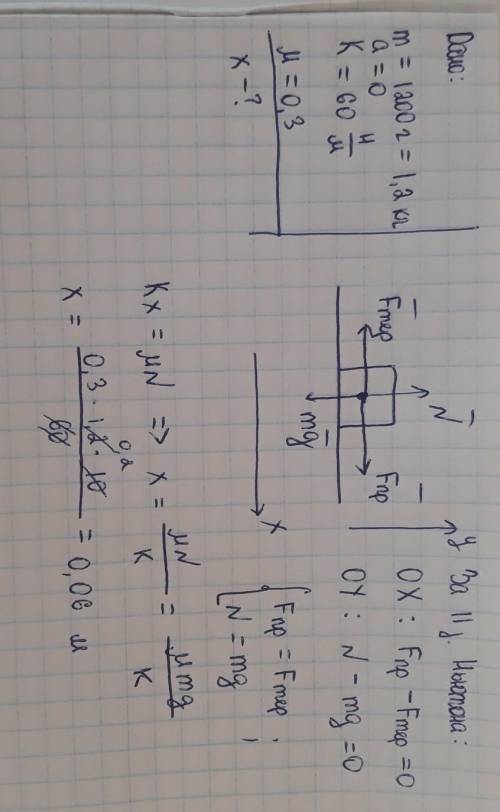 Дано:
m = 1200 г = 1,2 кг
a = 0
K = 60 Н/м
μ = 0,3
x - ?
N
y
Fтер
Fпр
mg
x
За II з. Ньютона:
OX: Fпр - Fтер = 0
OY: N - mg = 0
{ Fпр = Fтер ;
N = mg
Kx = μN => x = μN/K = μmg/K
x = 0,3 · 1,2 · 10 / 60 = 0,06 м
0,2